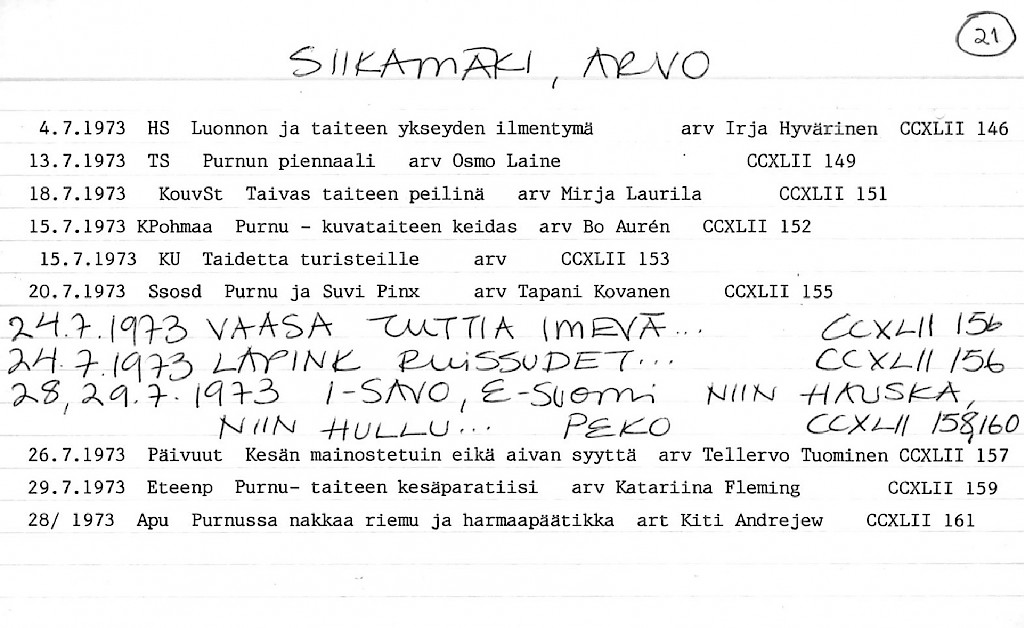 21
SIIKAMÄKI, ARVO
4.7.1973 HS Luonnon ja taiteen ykseyden ilmentymä arv Irja Hyvärinen CCXLII 146
13.7.1973 TS Purnun piennaali arv Osmo Laine CCXLII 149
18.7.1973 KouvSt Taivas taiteen peilinä arv Mirja Laurila CCXLII 151
15.7.1973 KPohmaa Purnu - kuvataiteen keidas arv Bo Aurén CCXLII 152
15.7.1973 KU Taidetta turisteille arv CCXLII 153
20.7.1973 Ssosd Purnu ja Suvi Pinx arv Tapani Kovanen CCXLII 155
24.7.1973 VAASA TUTTIA IMEVÄ... CCXLII 156
24.7.1973 LAPINK RUISSUDET... CCXLII 156
28, 29.7.1973 I-SAVO, E-SUOMI NIIN HAUSKA,
NIIN HULLU... PEKO CCXLII 158,160
26.7.1973 Päivuut Kesän mainostetuin eikä aivan syyttä arv Tellervo Tuominen CCXLII 157
29.7.1973 Eteenp Purnu- taiteen kesäparatiisi arv Katariina Fleming CCXLII 159
28/ 1973 Apu Purnussa nakkaa riemu ja harmaapäätikka art Kiti Andrejew CCXLII 161